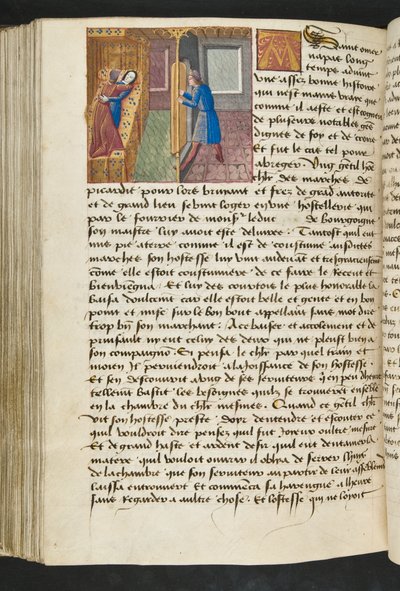 A Sainct omer
na pas long
temps advint
vne assez bonne histoire
qui nest mains vraye que
comme il a este et est cogneu
de plusieurs notables gẽs
dignes de foy et de croire
Et fut le cas tel pour
abreger. Vng gẽtil hõe
chlr des marches de
picardie pour lors bruyant et frez de grãd auctorite
et de grand lieu se vint loger en vne hostellerie qui
par le fourrier de monsr le duc de Bourgoigne
son maistre luy avoit este delivree. Tantost quil eut
mis pie a terre comme il est de coustume ausdites
marches son hostesse luy vint audevãt et tresgracieusemẽt
cõme elle estoit coustumiere de ce faire le Receut et
bienviengna. Et luy des courtois le plus honorable la
baisa doulcemẽt car elle estoit belle et gente et en bon
point et mise sur le bon bout appellant sans mot dire
trop biẽ son marchant. A ce baiser et accolement et de
prinsault ny eut celuy des deux qui ne pleust bien a
son compaignõ. Si pensa le chlr par quel train et
moien Il parviendroit a la Joissance de son hostesse
Et sen descouvrit a vng de ses serviteurs q̃ en peu dheure
tellemẽt bastit les besoignes quilz se trouverẽt ensẽble
en la chambre du chlr
Quand ce gẽtil chlr
vit son hostesse preste doyr dentendre et escouter ce
quil vouldroit dire pensez quil fut Joieux oultre mesure
Et de grand haste et ardent desir quil eut dentamer la
matere quil vouloit ouvrir il oblya de serrer luys
de la chambre que son serviteur au partir de leur assẽblemẽt
laissa entrouvert et commẽca sa harengue a lheure
sans regarder a aultre chose. Et lostesse qui ne loyoit